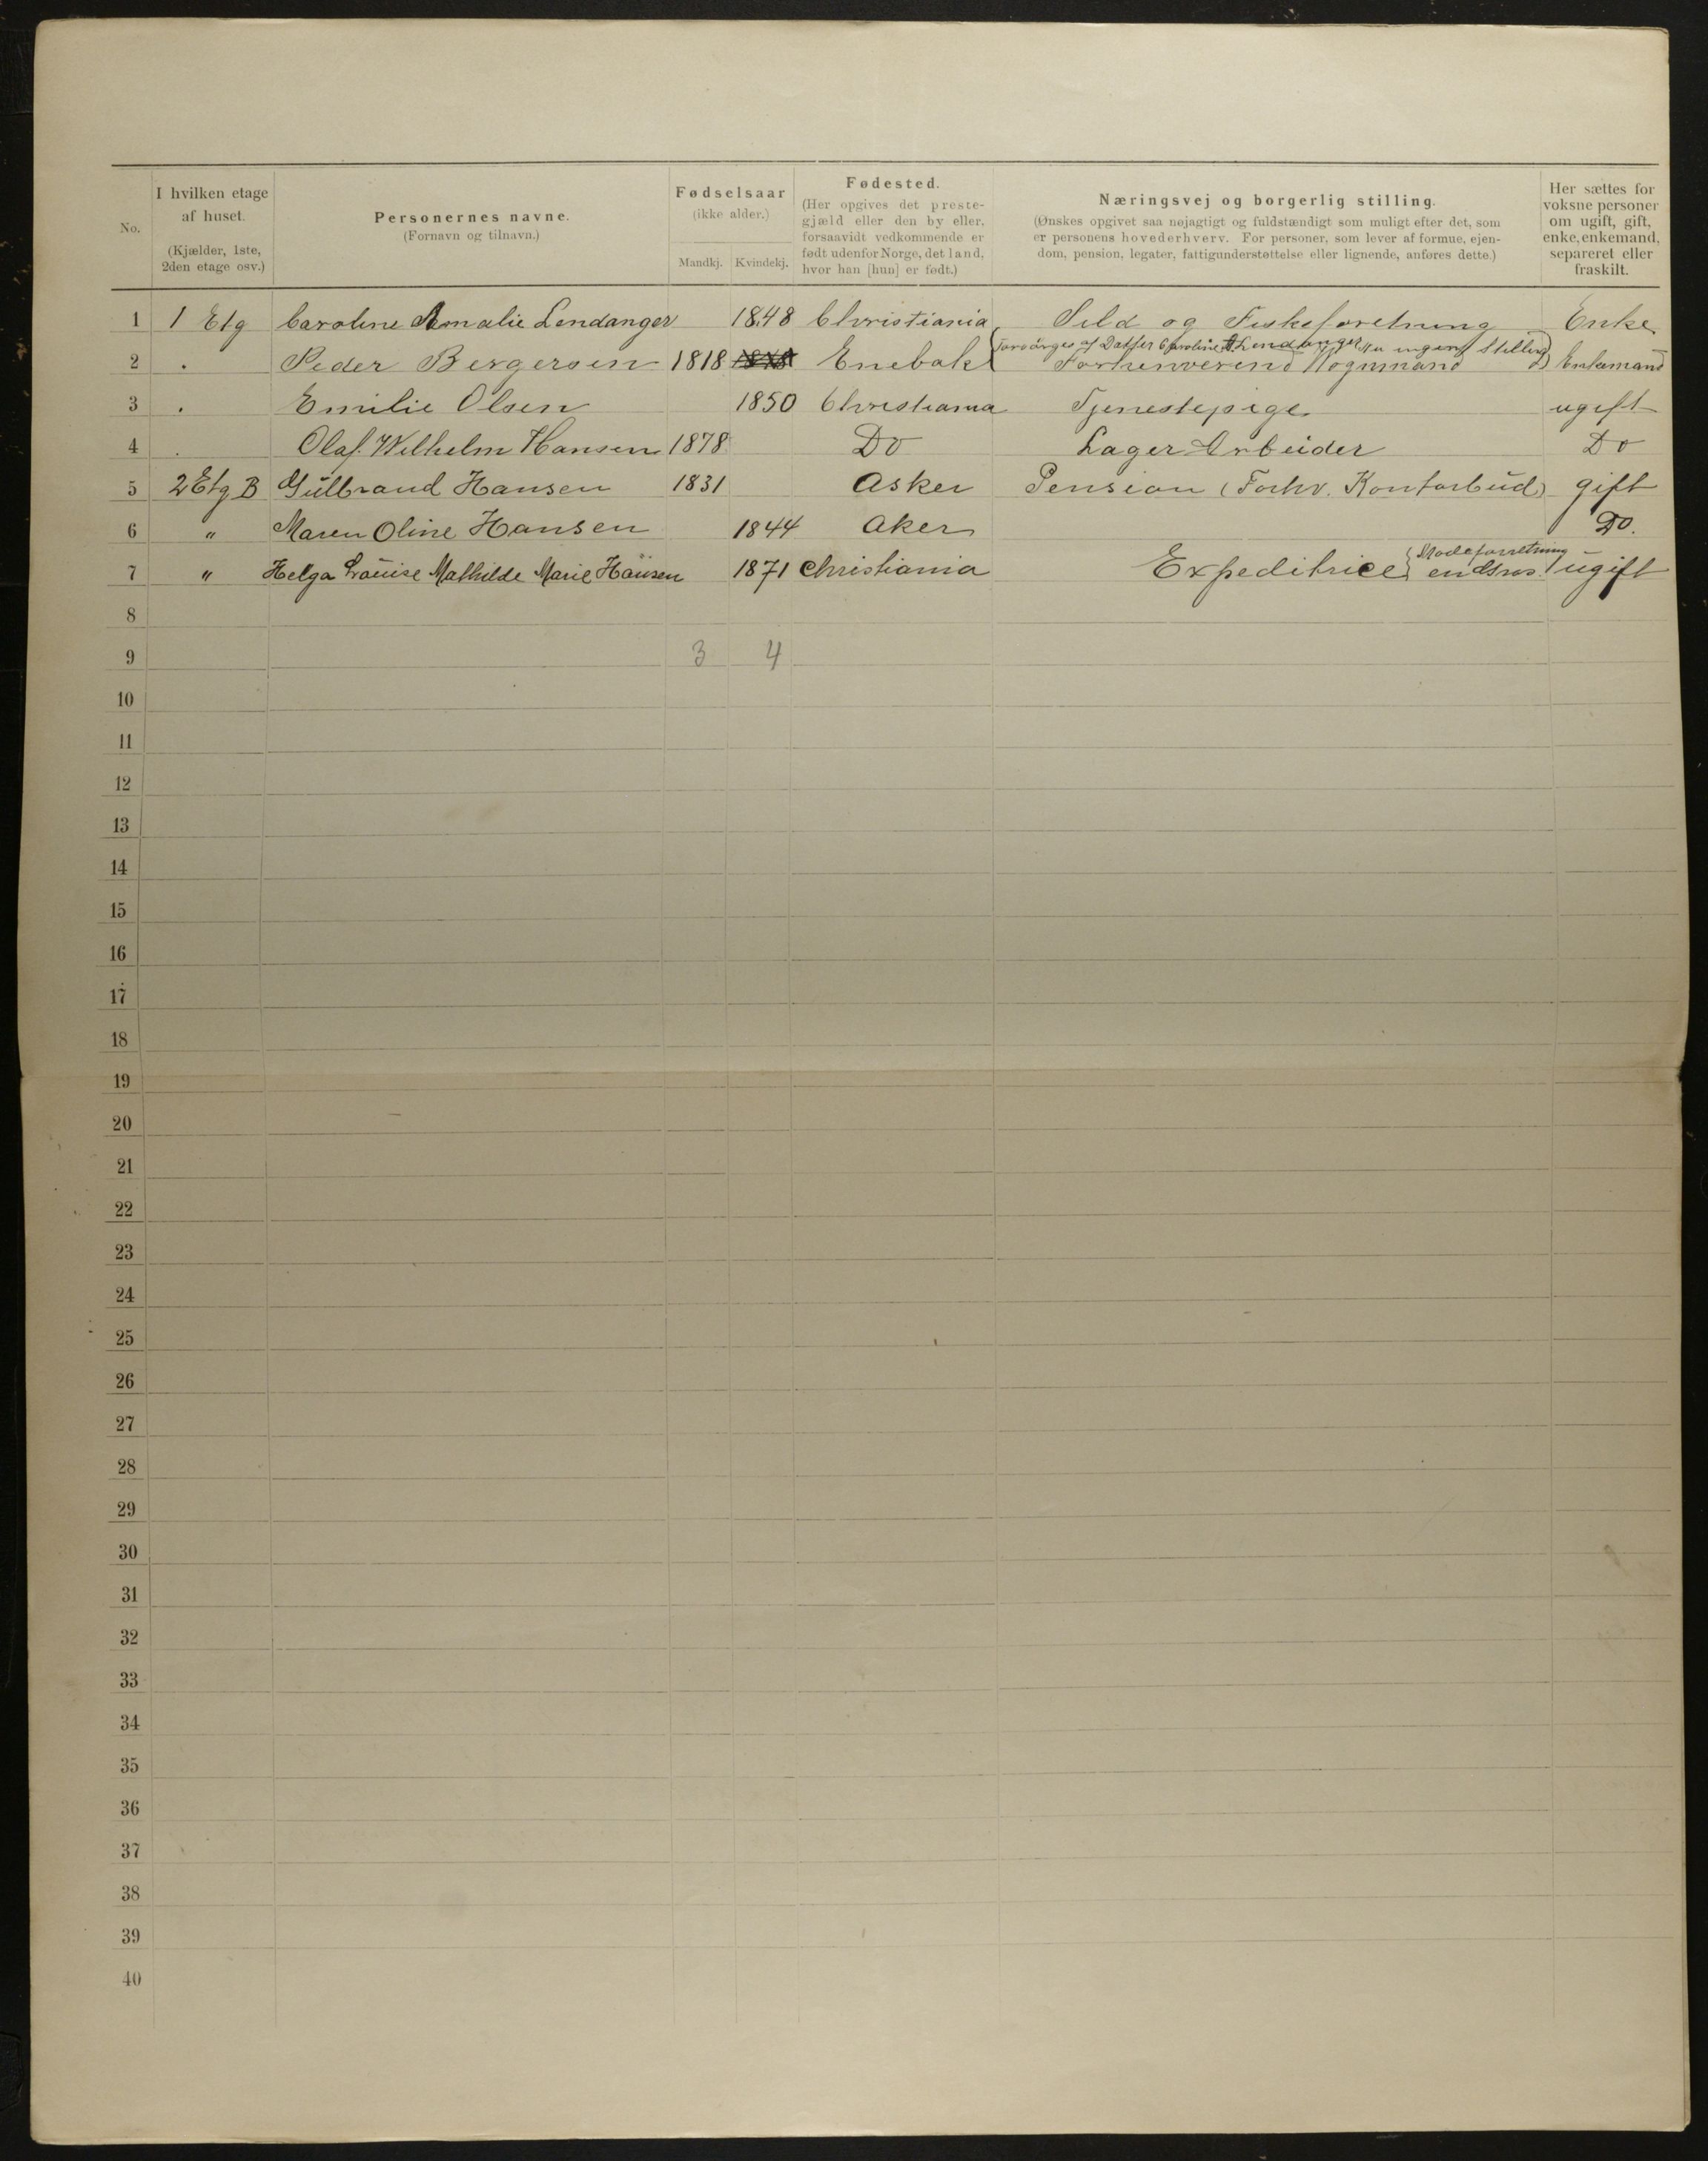 No.
I hvilken etage af huset.
(Kjælder, 1ste, 2den etage osv.)
Personernes navne.
(Fornavn og tilnavn.)
Fødselsaar
(ikke alder.)
Mandkj. Kvindekj.
Fødested.
(Her opgives det prestegjæld eller den by eller, forsaavidt vedkommende er født udenfor Norge, det land, hvor han [hun] er født.)
Næringsvej og borgerlig stilling.
(Ønskes opgivet saa nøjagtigt og fuldstændigt som muligt efter det, som er personens hovederhverv. For personer, som lever af formue, ejendom, pension, legater, fattigunderstøttelse eller lignende, anføres dette.)
Her sættes for voksne personer om ugift, gift, enke, enkemand, separeret eller fraskilt.
1 1 Etg Caroline Amalie Lendanger 1848 Christiania Sild og Fiskeforetning Enke
2 . Peder Bergersen 1818 Enebak (Forsörges af Datter Caroline A Lendanger, Nu ingen Stilling) Forhenverend Vognmand Enkemand
3 . Emilie Olsen 1850 Christiania Tjenestepige ugift
4 . Olaf Wilhelm Hansen 1878 Do Lager Arbeider Do
5 2 Etg B Gulbrand Hansen 1831 Asker Pension (Forhv. Kontorbud) gift
6 " Maren Oline Hansen 1844 Aker Do.
7 " Helga Louise Mathilde Marie Hansen 1871 Christiania Expeditrice Modeforretning ugift
8
9 3 4
10
11
12
13
14
15
16
17
18
19
20
21
22
23
24
25
26
27
28
29
30
31
32
33
34
35
36
37
38
39
40